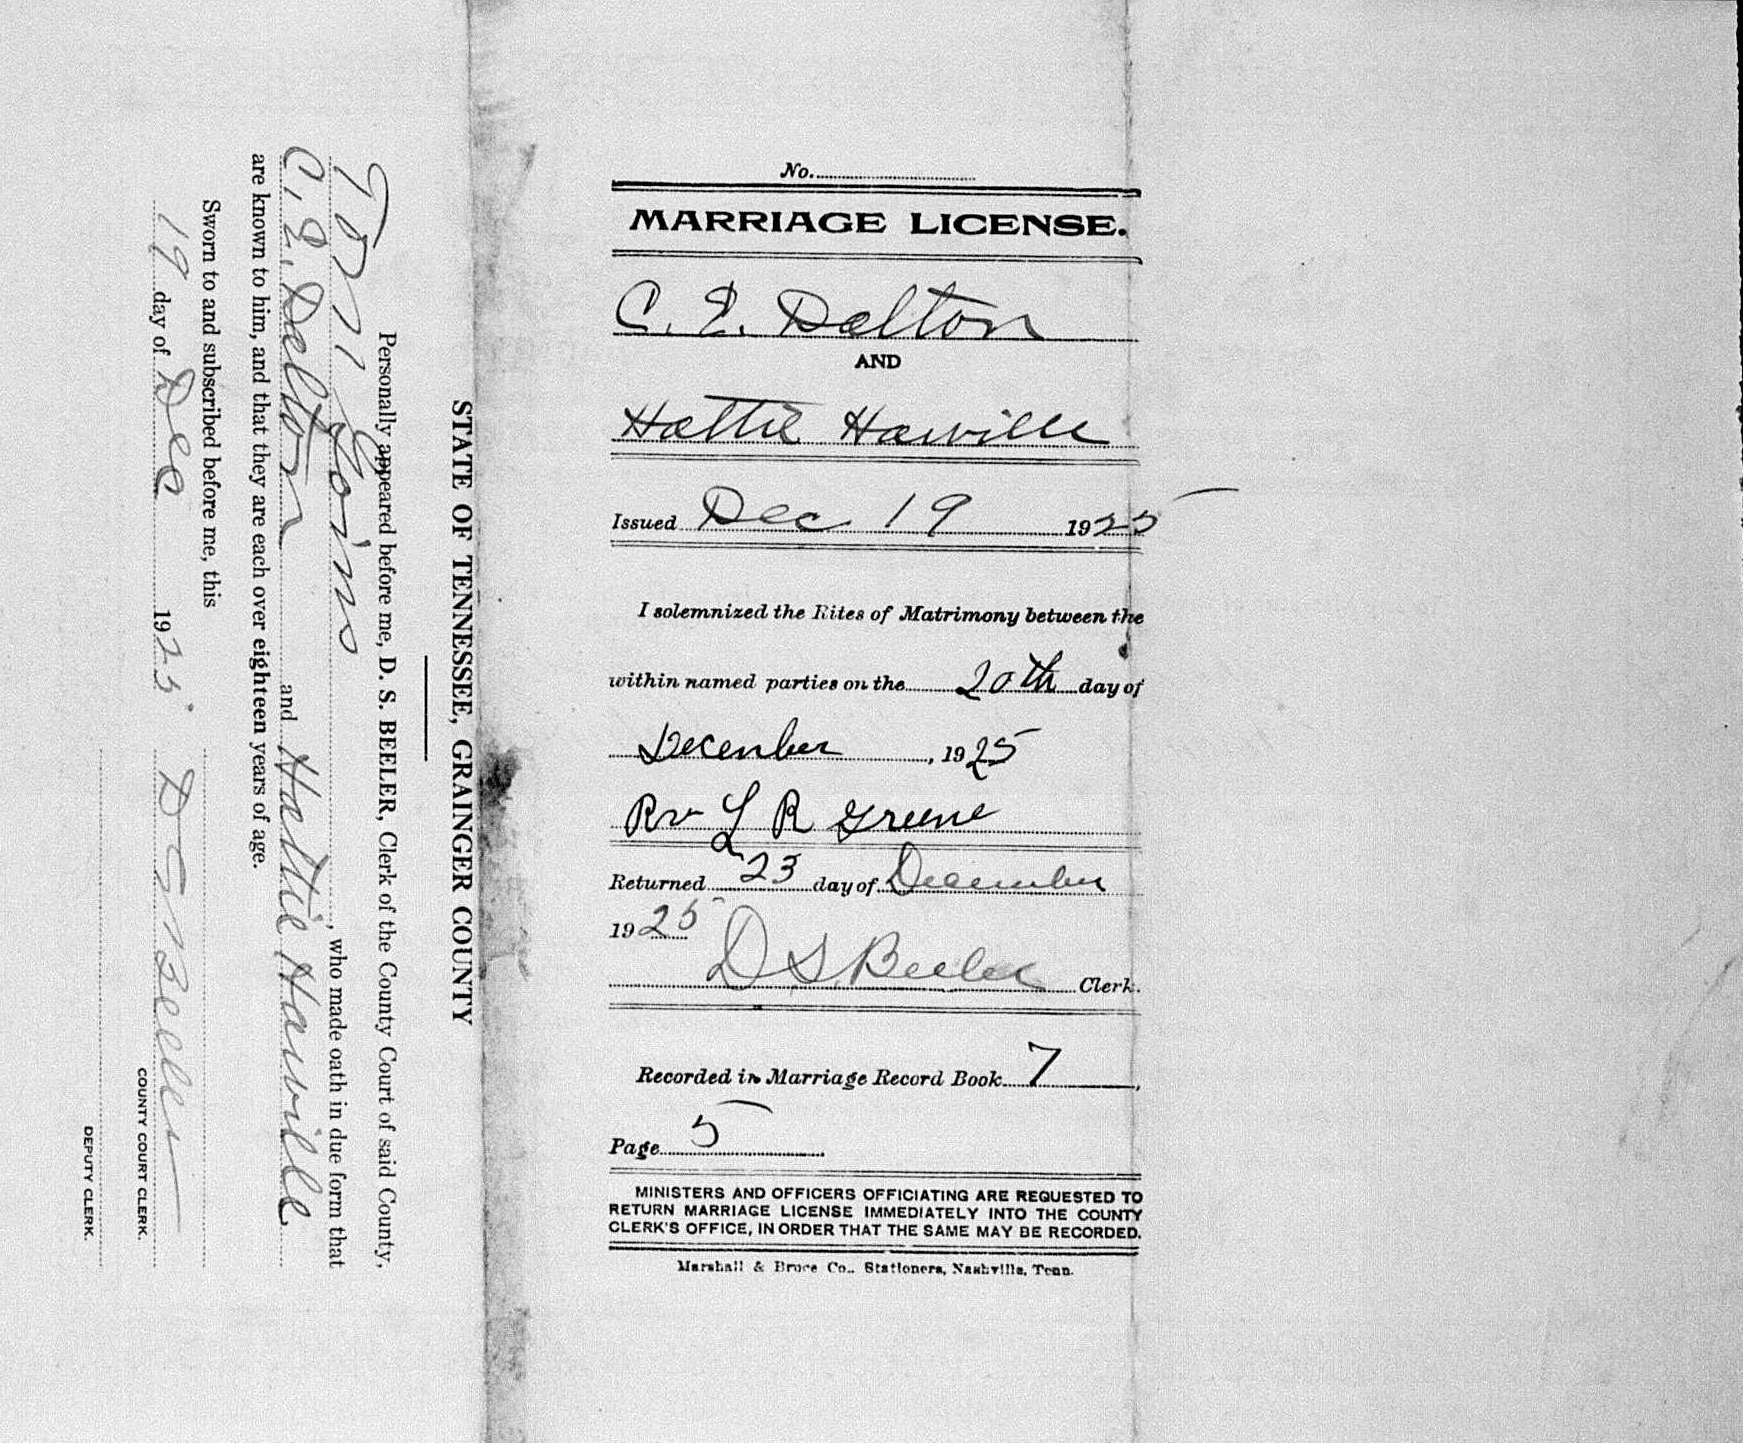 No.
MARRIAGE LICENSE.
C. E. Dalton
AND
Hattie Harville
Issued Dec 19 1925
I solemnized the Rites of Matrimony between the
within named parties on the 20th day of
December, 1925
Rv L R Greene
Returned 23 day of December
1925
D S. Beeler Clerk.
Recorded in Marriage Record Book 7,
Page 5
MINISTERS AND OFFICERS OFFICIATING ARE REQUESTED TO
RETURN MARRIAGE LICENSE IMMEDIATELY INTO THE COUNTY
CLERK'S OFFICE, IN ORDER THAT THE SAME MAY BE RECORDED.
Marshall & Bruce Co., Stationers, Nashville, Tenn.
STATE OF TENNESSEE, GRAINGER COUNTY
Personally appeared before me, D. S. BEELER, Clerk of the County Court of said County,
Goins, who made oath in due form that
C. E. Dalton and Hattie Harville
are known to him, and that they are each over eighteen years of age.
Sworn to and subscribed before me, this
19 day of Dec 1925.
D S Beeler
COUNTY COURT CLERK.
DEPUTY CLERK.